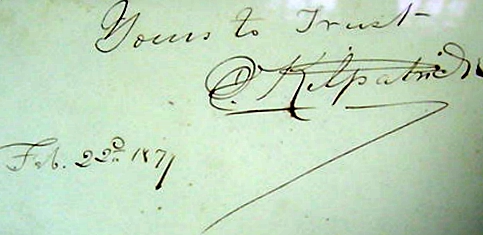 Yours to Trust
C. Kilpatrick
Feb. 22d 1871